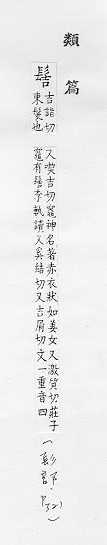 類篇
髻
吉詣切
束髮也
又喫吉切竈神名著赤衣狀如美女又激質切莊子
竈有髻李軌讀又奚結切又吉屑切文一重音四
(髟部